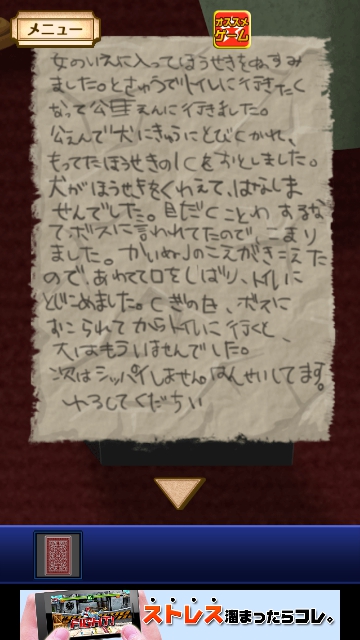 メニュー
オススメ
ゲーム
女のいえに入ってほうせきをぬすみ
ました。とちゅうでトイレに行きたく
なって公園えんに行きました。
公えんで犬にきゅうにとびCかれ、
もってたほうせきの1Cをおとしました。
犬がほうせきをくわえて、はなしま
せんでした。目だCことわするな
てボスに言われてたので、こまり
ました。かいぬしのこえがきこえた
ので、あわてて口をしばり、トイレに
とじこめました。Cぎの日、ボスに
おこられてからトイレに行くと、
犬はもういませんでした。
次はシッパイしません。はんせいしてます。
ゆるしてくだちい
FIGHT!
ストレス溜まったらコレ。